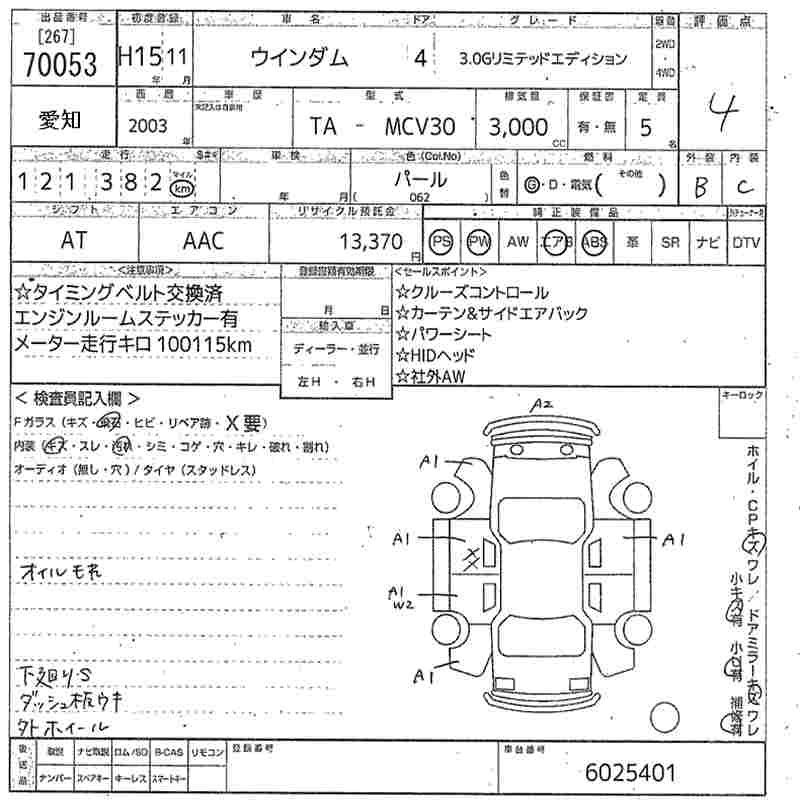 出品番号 初度登録 車名 ドア グレード 駆動 評価点
[267]
70053 H15 11 ウインダム 4 3.0Gリミテッドエディション 2WD 4WD 4
年 月
愛知 西暦 車歴 型式 排気量 保証書 定員
未記入は自家用
2003 年 TA - MCV30 3,000 CC 有・無 5 名
走行 車検 色(Col.No) 燃料 外装 内装
121382 マイル km 年 月 パール 色替 G・D・電気( その他 ) B C
( 062 )
シフト エアコン リサイクル預託金 純正装備品
AT AAC 13,370 円 PS PW AW エアB ABS 革 SR ナビ DTV
<注意事項> 登録書類有効期限 <セールスポイント>
☆タイミングベルト交換済
エンジンルームステッカー有
メーター走行キロ100115km
月 日
輸入車
ディーラー・並行
左H ・ 右H
☆クルーズコントロール
☆カーテン&サイドエアバック
☆パワーシート
☆HIDヘッド
☆社外AW
キーロック
< 検査員記入欄 >
Fガラス(キズ・飛石・ヒビ・リペア跡・X要)
内装(キズ・スレ・汚れ・シミ・コゲ・穴・キレ・破れ・割れ)
オーディオ(無し・穴)/タイヤ(スタッドレス)
オイルモれ
下廻りS
ダッシュ板ウキ
外ホイール
A2
A1
A1 XX A1
A1
W2
A1
ホイル・CPキズワレ/ドアミラーキズワレ
小キズ有 小凹有 補修有
後送品 取説 ナビ取説 ロム/SD B-CAS リモコン 登録番号 車台番号
ナンバー スペアキー キーレス スマートキー
6025401